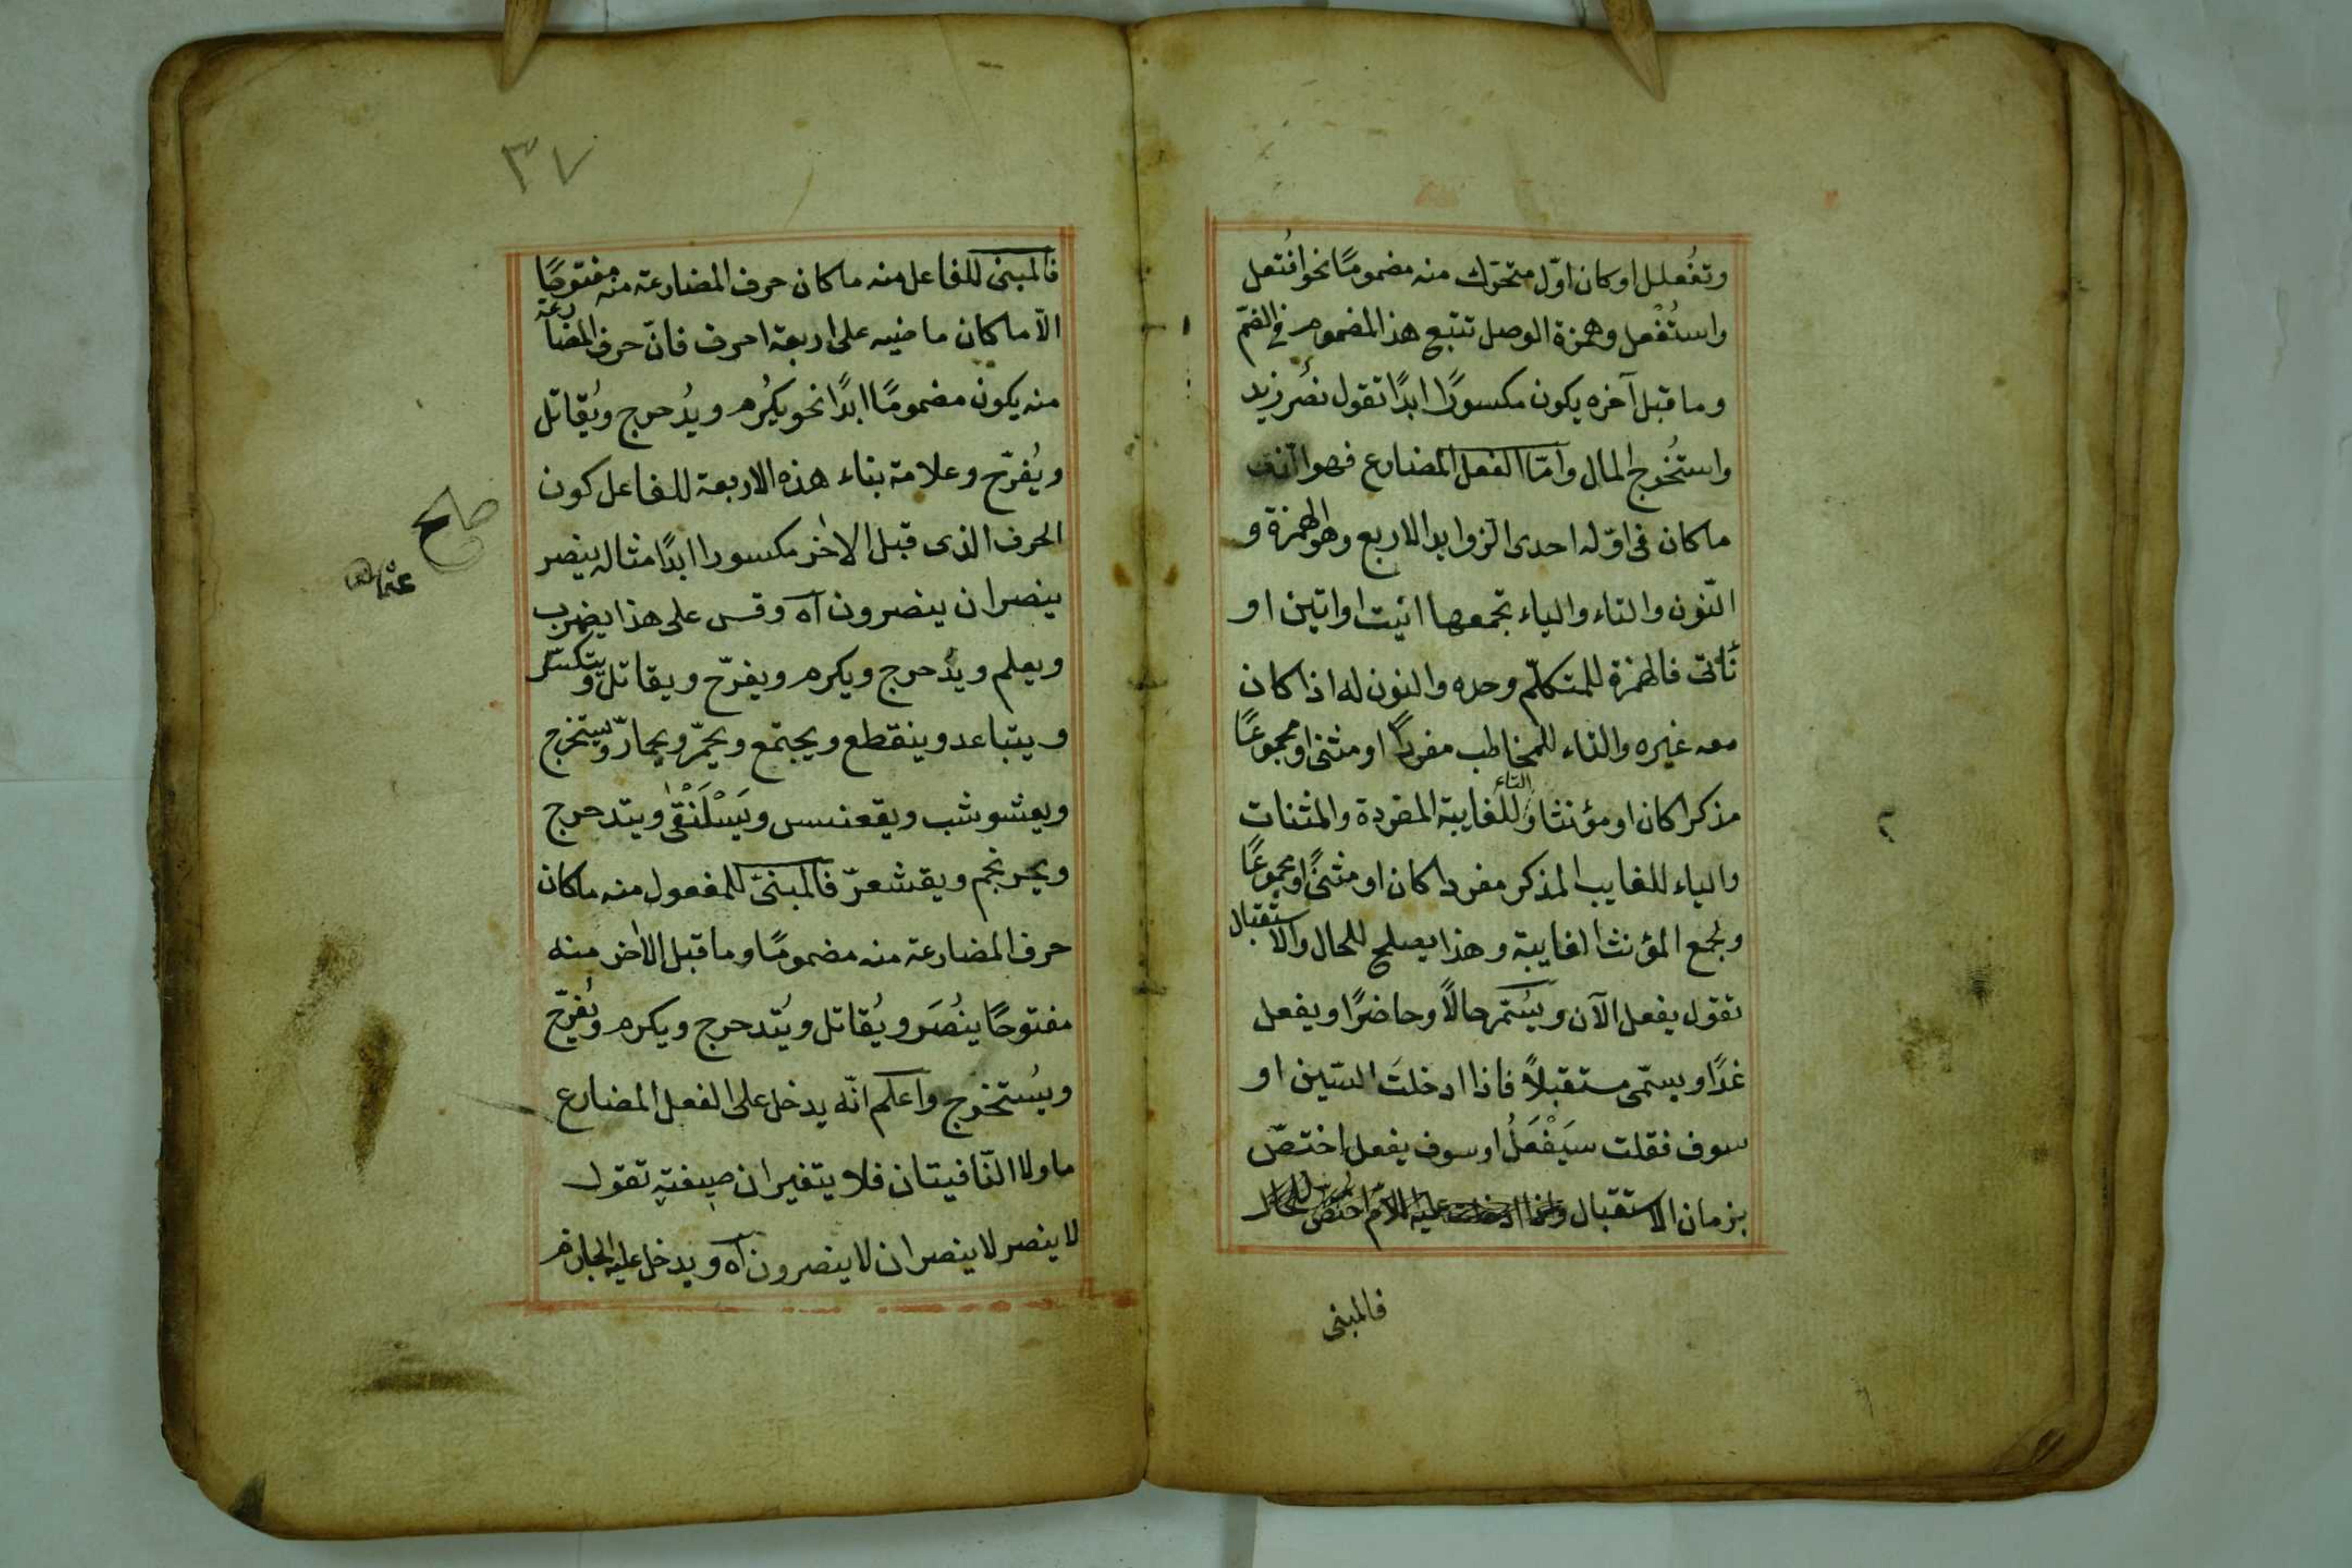 وتفُعلل او كان اوّل متحرّك منه مضمومًا نحو افُتعل
واستُفْعل وهمزة الوصل تتبع هذا المضموم فى الضمّ
وما قبل آخره يكون مكسورًا ابدًا تقول نصُر زيد
واستُخرج المال وامّا الفعل المضارع فهو
ما كان فى اوّله احدى الزوايد الاربع وهو الهمزة و
النّون والتاء والياء تجمعها انيت او اتين او
نَأتى فالهمزة للمتكلّم وحده والنون له اذا كان
معه غيره والتاء للمخاطب مفردًا او مثنى او مجموعًا
مذكرا كان او مؤنثا والتاء للغايبة المفردة والمثنات
والياء للغايب المذكر مفردا كان او مثنىً او مجموعًا
ولجمع المؤنث الغايبة وهذا يصلح للحال والاستقبال
تقول يفعل الآن ويُسمّى حالًا وحاضرًا ويفعل
غدًا ويسمّى مستقبلاً فاذا ادخلتَ السّين او
سوف فقلت سيَفْعَلُ او سوف يفعل اختصّ
بزمان الاستقبال
فالمبنى
٣٧
فالمبنى للفاعل منه ما كان حرف المضارعة منه مفتوحًا
الاّ ما كان ماضيه على اربعة احرف فانّ حرف المضارعة
منه يكون مضمومًا ابدًا نحو يكُرم ويدُحرج ويُقاتل
ويُفرّح وعلامة بناء هذه الاربعة للفاعل كون
الحرف الذى قبل الاخر مكسورا ابدًا مثاله ينصر
ينصران ينصرون آه وقس على هذا يضرب
ويعلم ويدُحرج ويكرم ويفرّح ويقاتل ويتكسّر
ويتباعد وينقطع ويجتمع ويحمّر ويحمارّ ويستخرج
ويعشوشب ويقعنسس ويَسْلَنْقى ويتدحرج
ويحرنجم ويقشعرّ فالمبنىّ للمفعول منه ما كان
حرف المضارعة منه مضمومًا وما قبل الاخر منه
مفتوحًا ينُصَر ويُقاتل ويُتدحرج ويكرم ويُفرّح
ويُستخرج واعلم انّه يدخل على الفعل المضارع
ما ولا النّافيتان فلا يتغيران صيغته تقول
لا ينصر لا ينصران لا ينصرون آه ويدخل عليه الجازم
صلح